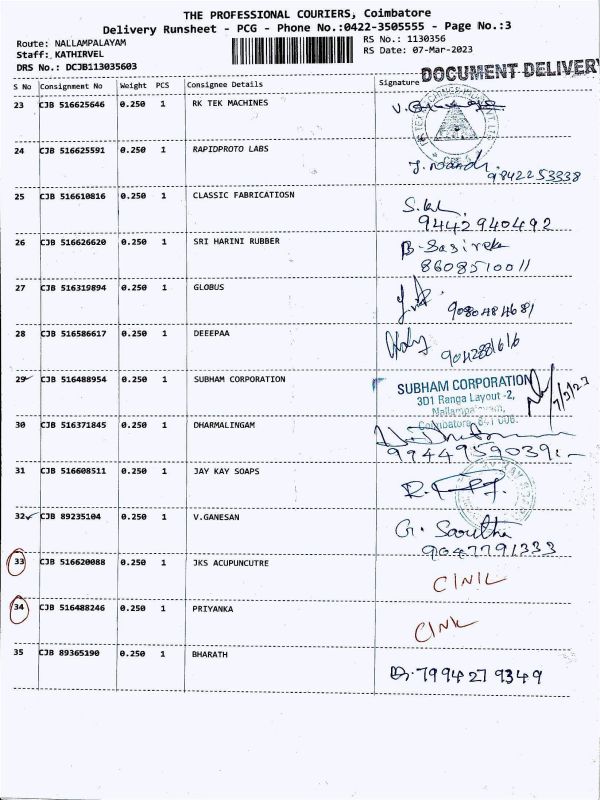 THE PROFESSIONAL COURIERS, Coimbatore
Delivery Runsheet - PCG - Phone No.:0422-3505555 - Page No.:3
Route: NALLAMPALAYAM
RS No.: 1130356
Staff: KATHIRVEL
RS Date: 07-Mar-2023
DRS No.: DCJB113035603
DOCUMENT DELIVERY
S No Consignment No Weight PCS Consignee Details Signature
23 CJB 516625646 0.250 1 RK TEK MACHINES
24 CJB 516625591 0.250 1 RAPIDPROTO LABS
9842253338
25 CJB 516610816 0.250 1 CLASSIC FABRICATIOSN
9442940492
26 CJB 516626620 0.250 1 SRI HARINI RUBBER
8608510011
27 CJB 516319894 0.250 1 GLOBUS
9080484681
28 CJB 516586617 0.250 1 DEEEPAA
9042881616
29 CJB 516488954 0.250 1 SUBHAM CORPORATION
SUBHAM CORPORATION
3D1 Ranga Layout -2,
Nallampalayam,
Coimbatore - 641 006.
7/3/23
30 CJB 516371845 0.250 1 DHARMALINGAM
9944959039
31 CJB 516608511 0.250 1 JAY KAY SOAPS
32 CJB 89235104 0.250 1 V.GANESAN
G. Saritha
9047791333
33 CJB 516620088 0.250 1 JKS ACUPUNCUTRE
C/N/L
34 CJB 516488246 0.250 1 PRIYANKA
C/NL
35 CJB 89365190 0.250 1 BHARATH
7994279349